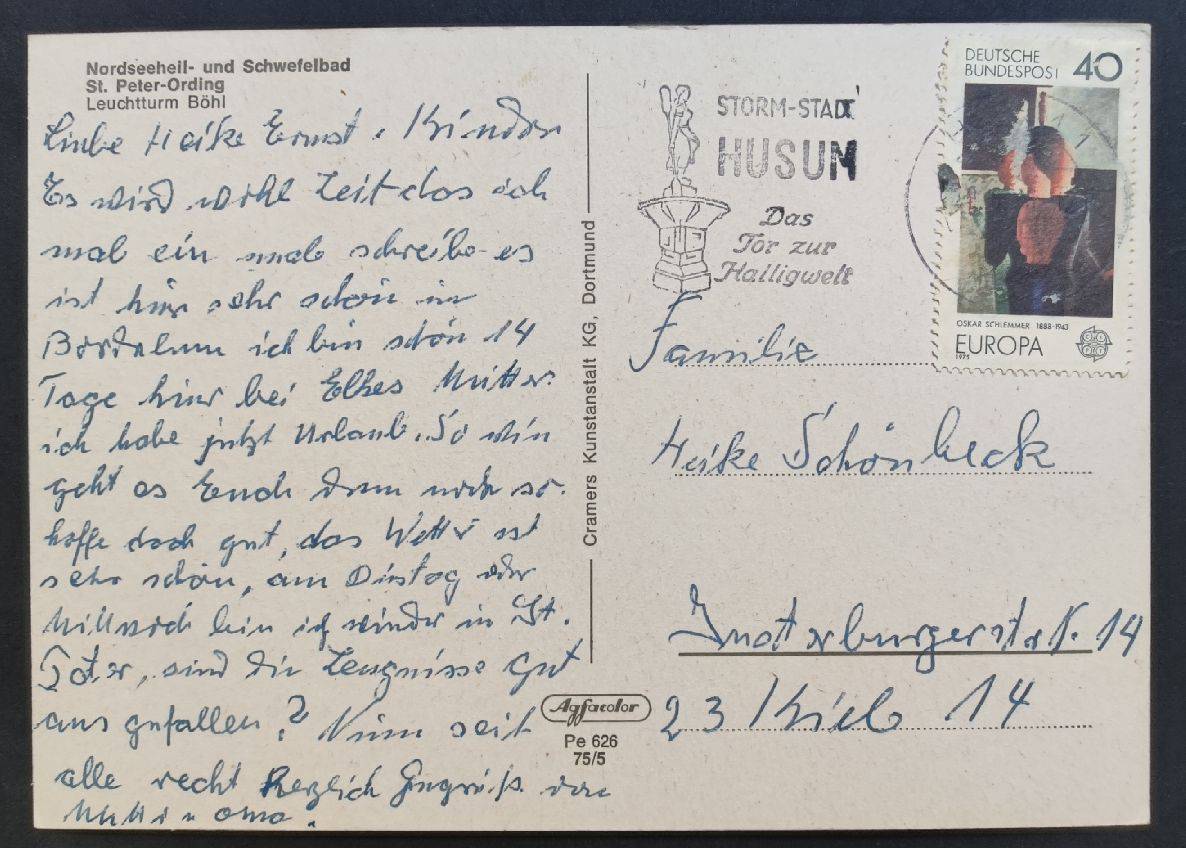 Nordseeheil- und Schwefelbad
St. Peter-Ording
Leuchtturm Böhl
Liebe Heike Ernst + Kinder
Es wird wohl Zeit das ich
mal ein mal schreibe es
ist hier sehr schön in
Bordelum ich bin schön 14
Tage hier bei Elkes Mutter.
ich habe jetzt Urlaub. So wie
geht es Euch denn noch so.
hoffe doch gut, das Wetter ist
sehr schön, am Dinstag oder
Mittwoch bin ich wieder in St.
Peter, sind die Zeugnisse gut
aus gefallen? Nun seit
alle recht Herzlich Gegrüß von
Mutti u oma.
Cramers Kunstanstalt KG, Dortmund
Agfacolor
Pe 626
75/5
STORM-STADT
HUSUM
Das
Tor zur
Halligwelt
DEUTSCHE
BUNDESPOST 40
OSKAR SCHLEMMER 1888-1943
EUROPA
1975
CEPT
Familie
Heike Schönbeck
Insterburgerstr. 14
23 Kiel 14